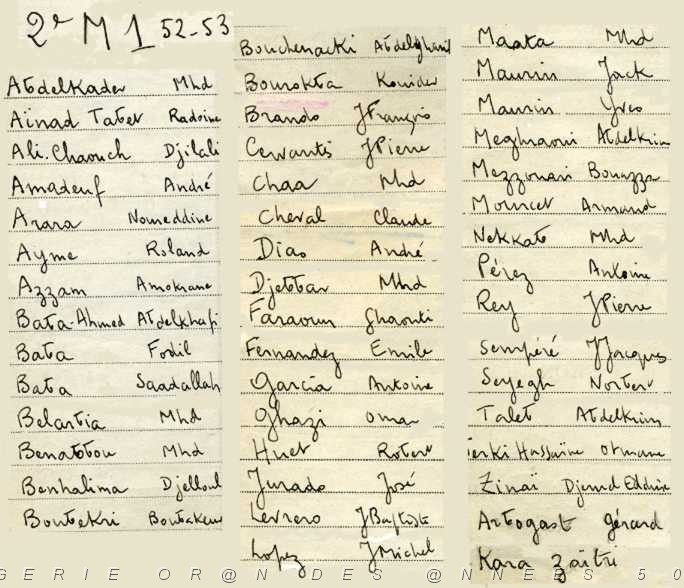 2e M 1 52-53
Abdelkader Mhd
Aïnad Tabet Radoine
Ali.Chaouch Djilali
Amadeuf André
Arara Noureddine
Ayme Roland
Azzam Amokrane
Baba-Ahmed Abdelkhafi
Baba Fodil
Baba Saadallah
Belarbia Mhd
Benabbou Mhd
Benhalima Djelloul
Boubekri Boubakeur
Bouchenacki Abdelghani
Bourokba Kouider
Brando JFrançois
Cervantis JPierre
Chaa Mhd
Cheval Claude
Diao André
Djebbar Mhd
Faraoun Ghaouti
Fernandez Emile
Garcia Antoine
Ghazi Omar
Huet Robert
Jurado José
Levrero JBaptiste
Lopez JMichel
Maata Mhd
Maurin Jack
Maurin Yves
Meghraoui Abdelkrim
Mezzouari Bouazza
Mourcet Armand
Nekkab Mhd
Pérez Antoine
Rey JPierre
Sempéré JJacques
Seyegh Norbert
Talet Abdelkrim
erki Hassaine Otmane
Zinaï Djemel Eddine
Arbogast Gérard
Kara Zaïtri
GERIE OR@N DES @NNEES 50